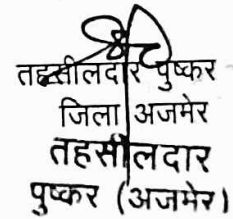 तहसीलदार पुष्कर
जिला अजमेर
तहसीलदार
पुष्कर (अजमेर)